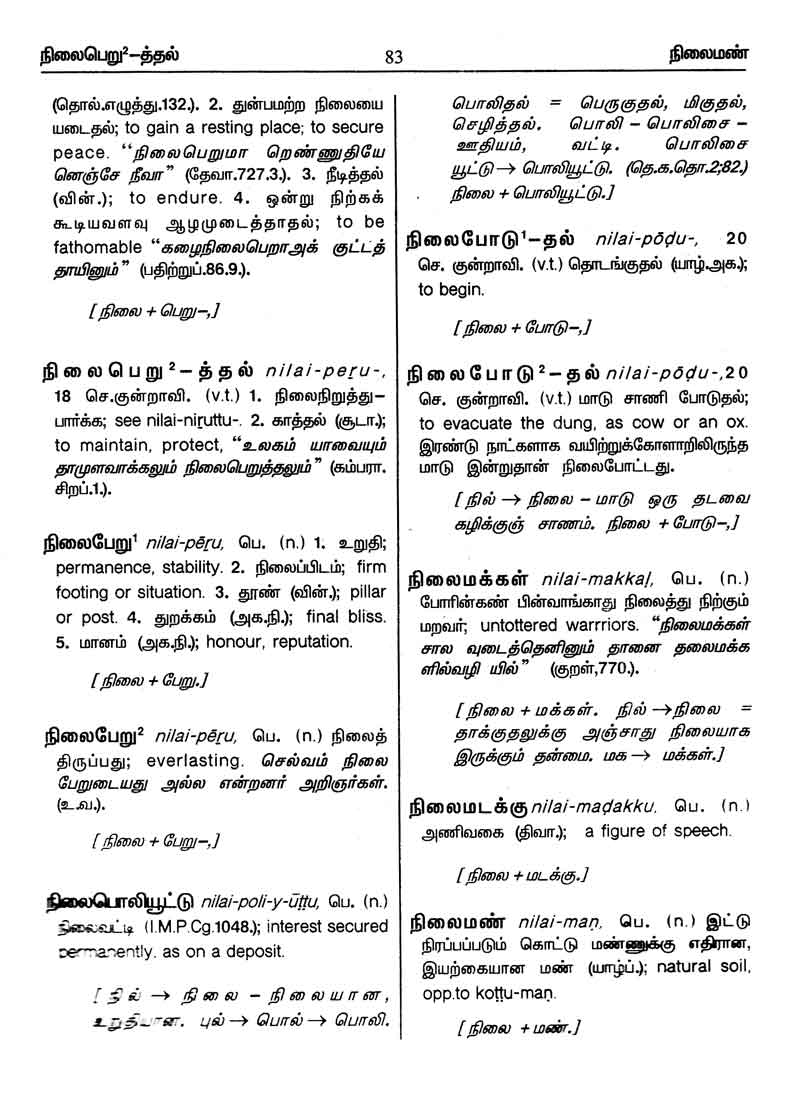 நிலைபெறு²–த்தல்
83
நிலைமண்
(தொல்.எழுத்து.132.). 2. துன்பமற்ற நிலையை
யடைதல்; to gain a resting place; to secure
peace. “நிலைபெறுமா றெண்ணுதியே
னெஞ்சே நீவா” (தேவா.727,3.). 3. நீடித்தல்
(வின்.); to endure. 4. ஒன்று நிற்கக்
கூடியவளவு ஆழமுடைத்தாதல்; to be
fathomable “கழைநிலைபெறாஅக் குட்டத்
தாயினும்” (பதிற்றுப்.86.9.).
[நிலை + பெறு–,]
நிலைபெறு²–த்தல் nilai-peṟu-,
18 செ.குன்றாவி. (v.t.) 1. நிலைநிறுத்து–
பார்க்க; see nilai-niṟuttu-. 2. காத்தல் (சூடா.);
to maintain, protect, “உலகம் யாவையும்
தாமுளவாக்கலும் நிலைபெறுத்தலும்” (கம்பரா.
சிறப்.1.).
நிலைபேறு¹ nilai-pēṟu, பெ. (n.) 1. உறுதி;
permanence, stability. 2. நிலைப்பிடம்; firm
footing or situation. 3. தூண் (வின்.); pillar
or post. 4. துறக்கம் (அக.நி.); final bliss.
5. மானம் (அக.நி.); honour, reputation.
[நிலை + பேறு.]
நிலைபேறு² nilai-pēṟu, பெ. (n.) நிலைத்
திருப்பது; everlasting. செல்வம் நிலை
பேறுடையது அல்ல என்றனர் அறிஞர்கள்.
(உ.வ.).
[நிலை + பேறு–,]
நிலைபொலியூட்டு nilai-poli-y-ūṭṭu, பெ. (n.)
நிலைவட்டி (I.M.P.Cg.1048.); interest secured
permanently. as on a deposit.
[நில் → நிலை – நிலையான,
உறுதியான. புல் → பொல் → பொலி.
பொலிதல் = பெருகுதல், மிகுதல்,
செழித்தல். பொலி – பொலிசை –
ஊதியம், வட்டி. பொலிசை
யூட்டு → பொலியூட்டு. (தெ.க.தொ.2;82.)
நிலை + பொலியூட்டு.]
நிலைபோடு¹–தல் nilai-pōḍu-, 20
செ. குன்றாவி. (v.t.) தொடங்குதல் (யாழ்.அக.);
to begin.
[நிலை + போடு–,]
நிலைபோடு²–தல் nilai-pōḍu-,20
செ. குன்றாவி. (v.t.) மாடு சாணி போடுதல்;
to evacuate the dung, as cow or an ox.
இரண்டு நாட்களாக வயிற்றுக்கோளாறிலிருந்த
மாடு இன்றுதான் நிலைபோட்டது.
[நில் → நிலை – மாடு ஒரு தடவை
கழிக்குஞ் சாணம். நிலை + போடு–,]
நிலைமக்கள் nilai-makkaḷ, பெ. (n.)
போரின்கண் பின்வாங்காது நிலைத்து நிற்கும்
மறவர்; untottered warrriors. “நிலைமக்கள்
சால வுடைத்தெனினும் தானை தலைமக்க
ளில்வழி யில்” (குறள்,770.).
[நிலை + மக்கள். நில் →நிலை =
தாக்குதலுக்கு அஞ்சாது நிலையாக
இருக்கும் தன்மை. மக → மக்கள்.]
நிலைமடக்கு nilai-maḍakku, பெ. (n.)
அணிவகை (திவா.); a figure of speech.
[நிலை + மடக்கு.]
நிலைமண் nilai-maṇ, பெ. (n.) இட்டு
நிரப்பப்படும் கொட்டு மண்ணுக்கு எதிரான,
இயற்கையான மண் (யாழ்ப்.); natural soil,
opp.to koṭṭu-maṇ.
[நிலை + மண்.]